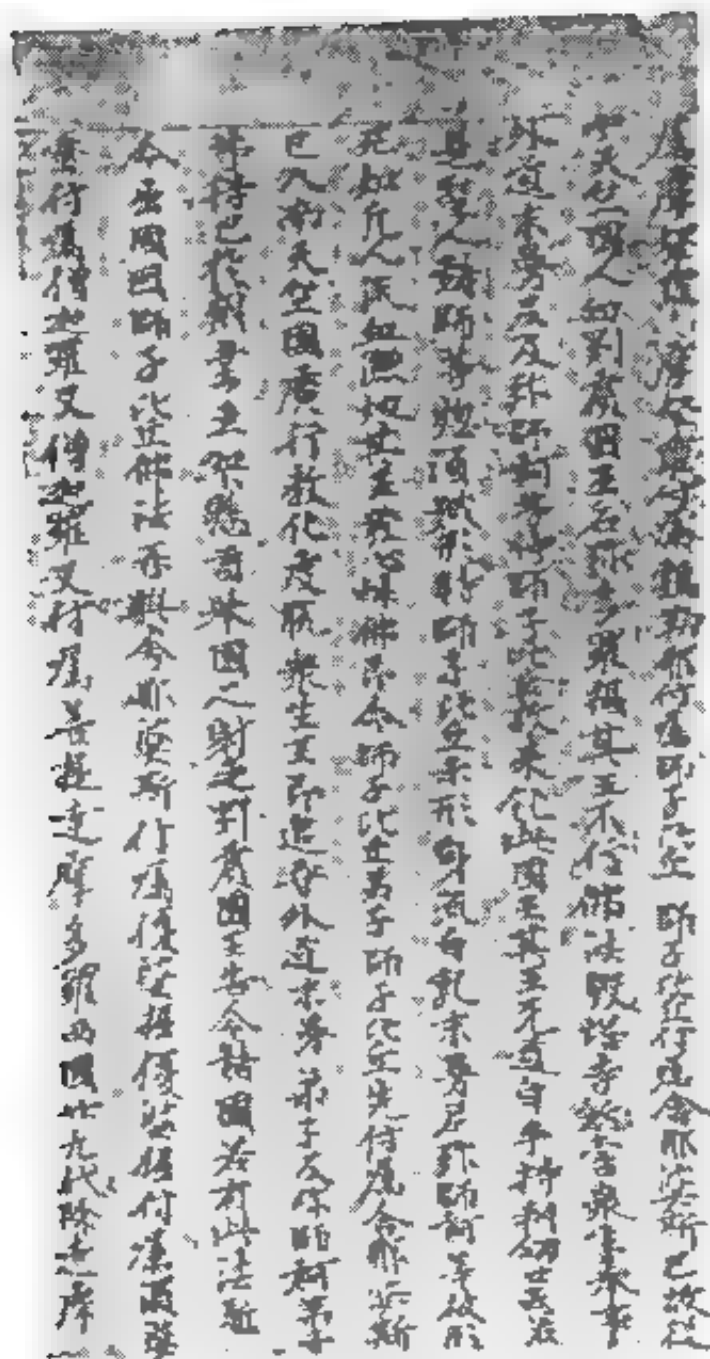 囑摩拏羅摩拏羅付囑鶴勒那付囑師子比丘師子比丘付囑舍那婆斯已故從
中天竺國人向罽賓國王名彌多羅掘其王不信佛法毀塔寺煞害衆生奉事
外道末曼尼及彌師訶等時師子比丘故來化此國王其王无道自手持利劍云若
是聖人諸師等總須誡形時師子比丘示形身流白乳末曼尼彌師訶等被形
死如凡人流血灑地其王發心歸佛即令師子比丘弟子師子比丘先付囑舍那婆斯
已入南天竺國廣行教化度脫衆生王即追尋外道末曼弟子及彌師訶弟子
等得已於朝堂立架懸首舉國人射之罽賓國王告令諸國若有此法驅
令出國因師子比丘佛法再興舍那婆斯付囑優婆掘優婆掘付須婆蜜
多付囑僧迦羅叉僧迦羅叉付囑菩提達摩多羅西國廿九代除達摩